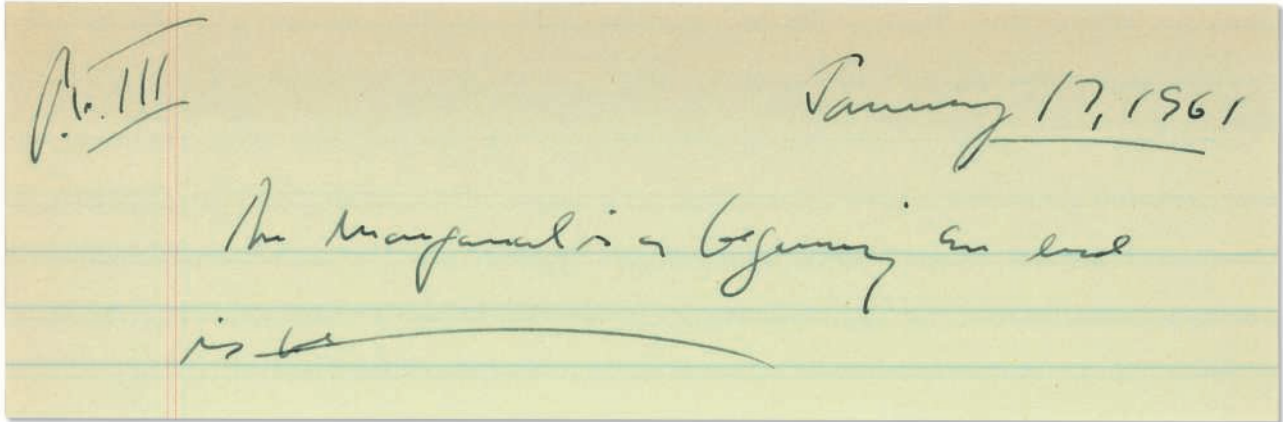 III
January 17, 1961
An inaugural is a beginning an end
is